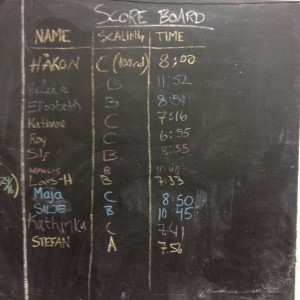 SCORE BOARD
NAME SCALING TIME
HÅKON C (100cd) 8:00
Helene B 11:52
Elisabeth B 8:51
Kathrine C 7:16
Roy C 6:55
Siv B 8:55
B
Lars-H B 7:33
Maja C 8:50
SILJE B 10:45
Kathinka C 7:41
STEFAN A 7:56